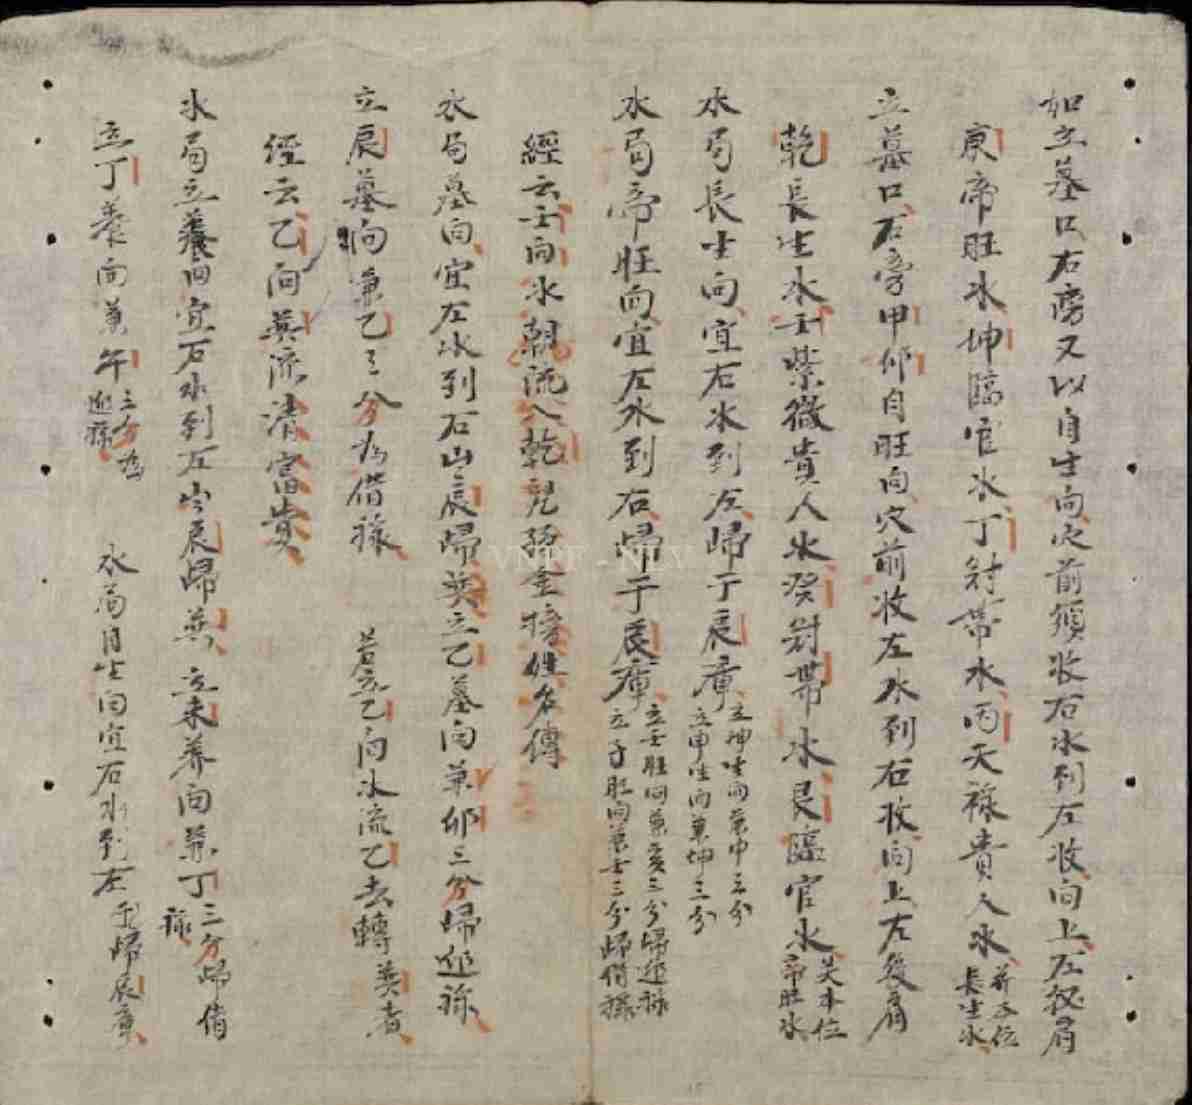 如立墓口右旁又以自生向穴前須收右水到左收向上左衮肩
庚帝旺水坤臨官水丁冠帶水丙天祿貴人水
并本位
長生水
立墓口右旁甲卯自旺向穴前收左水到右收向上左衮肩
乾長生水壬紫微貴人水癸冠帶水艮臨官水
本位
帝旺水
水局長生向宜右水到左歸于辰庫
立坤生向兼申三分
立申生向兼坤三分
水局帝旺向宜左水到右歸于辰庫
立壬旺向兼亥三分歸迎祿
立子旺向兼壬三分歸借祿
經云壬向水朝流入乾兒孫金榜姓名傳
水局墓向宜左水到右出辰歸巽立乙墓向兼卯三分歸迎祿
立辰墓向兼乙三分為借祿
若立乙向水流乙去轉巽者
經云乙向巽流清富貴
水局立養向宜右水到左出辰歸巽立未養向兼丁三分歸借
祿
立丁養向兼午
三分為
迎祿
水局自生向宜右水到左
歸辰庫
VNPF - NLV